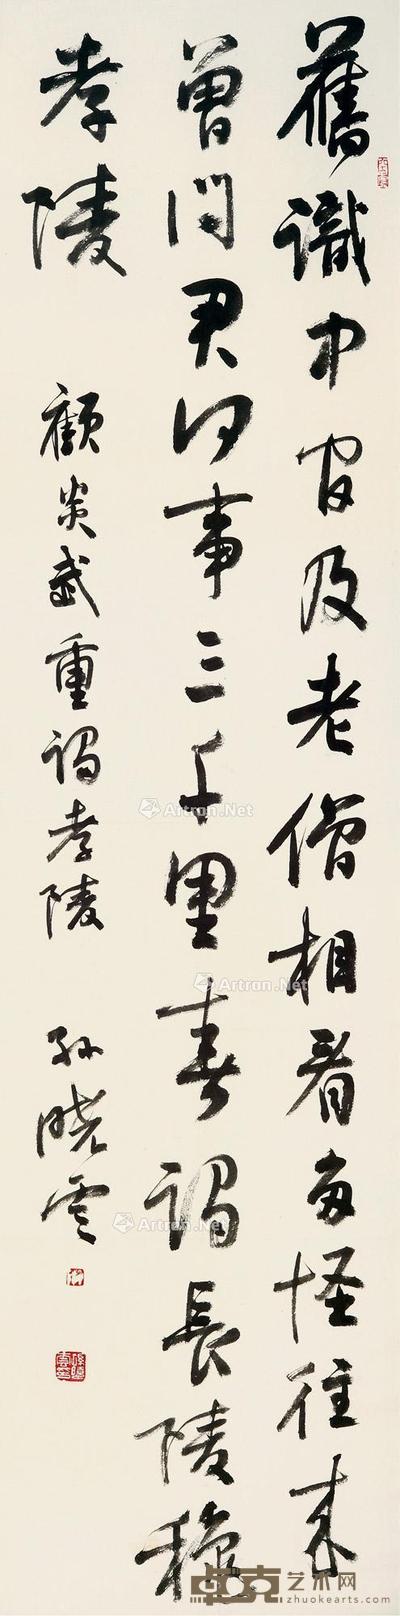 舊識中官及老僧相看多怪往來
曾問君何事三千里春謁長陵秋
孝陵
顧炎武重謁孝陵
孙曉雲
Artron.Net
Artron.Net
Artron.Net
卓克艺术网
www.zhuokearts.com